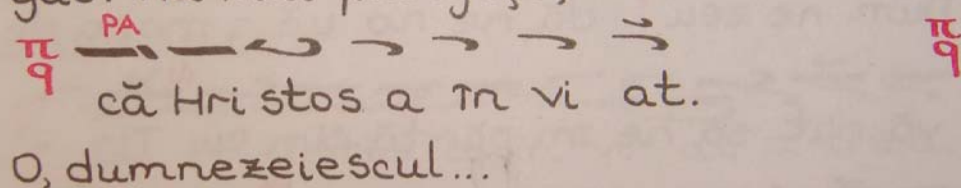 PA
π
q că Hri stos a în vi at. π
q
O, dumnezeiescul...